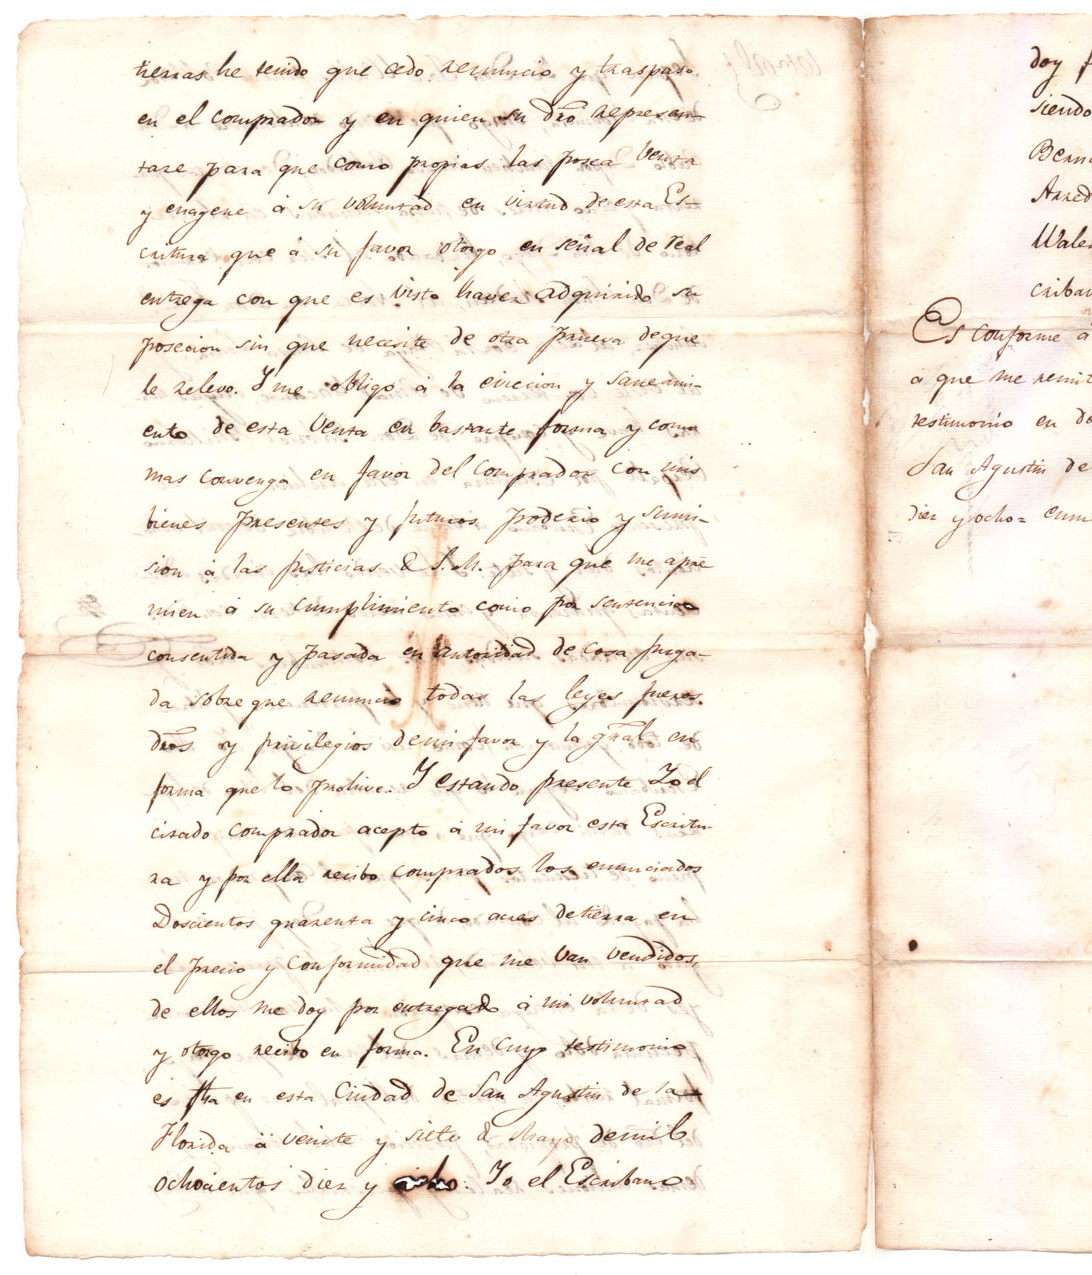 tierras he tenido que cedo renuncio y traspaso
en el comprador y en quien su dro represen-
tare para que como propias las posea Venda
y enagene á su voluntad en virtud de esta Es-
critura que á su favor otorgo en señal de real
entrega con que es visto haver adquirido su
posecion sin que necesite de otra prueva deque
le relevo. Y me obligo á la eviccion y saneami-
ento de esta Venta en bastante forma y como
mas convenga en favor del Comprador con mis
bienes presentes y futuros poderio y sumi-
sion á las Justicias de S. M. para que me apre
mien á su cumplimiento como por sentencia
consentida y pasada en autoridad de Cosa Juzga-
da sobre que renuncio todas las leyes fueros
dros y privilegios demi favor y la gral en
forma que lo prohive. Y estando presente Yo el
citado comprador acepto á mi favor esta Escritu-
ra y por ella recibo comprados los enunciados
Doscientos quarenta y cinco acres detierra en
el precio y Conformidad que me van vendidos,
de ellos me doy por entregado á mi voluntad
y otorgo recibo en forma. En Cuyo testimonio
es fha en esta Ciudad de San Agustin de la
Florida á veinte y siete de Mayo demil
ochocientos diez y ocho. Yo el Escribano
doy f
siendo
Bern
Arred
Wales
criban
Es conforme á
a que me remit
testimonio en do
San Agustin de
diez y ocho= enm